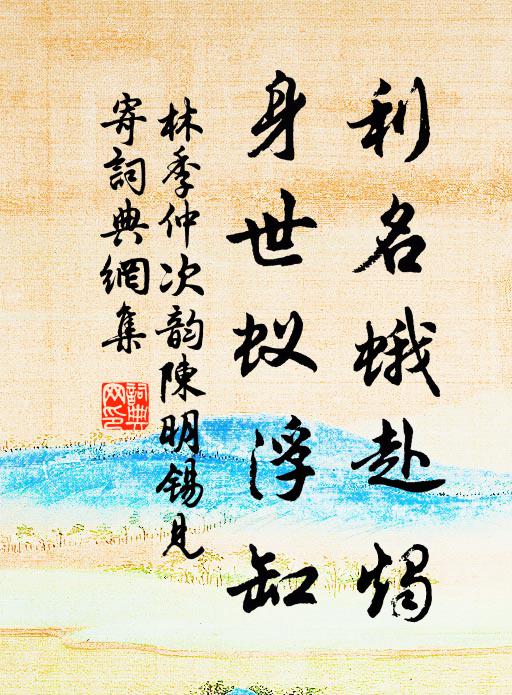 利名蛾赴烛
身世蚁浮缸
林季仲次韵陳明錫見
寄詞典網集
詞典
网印